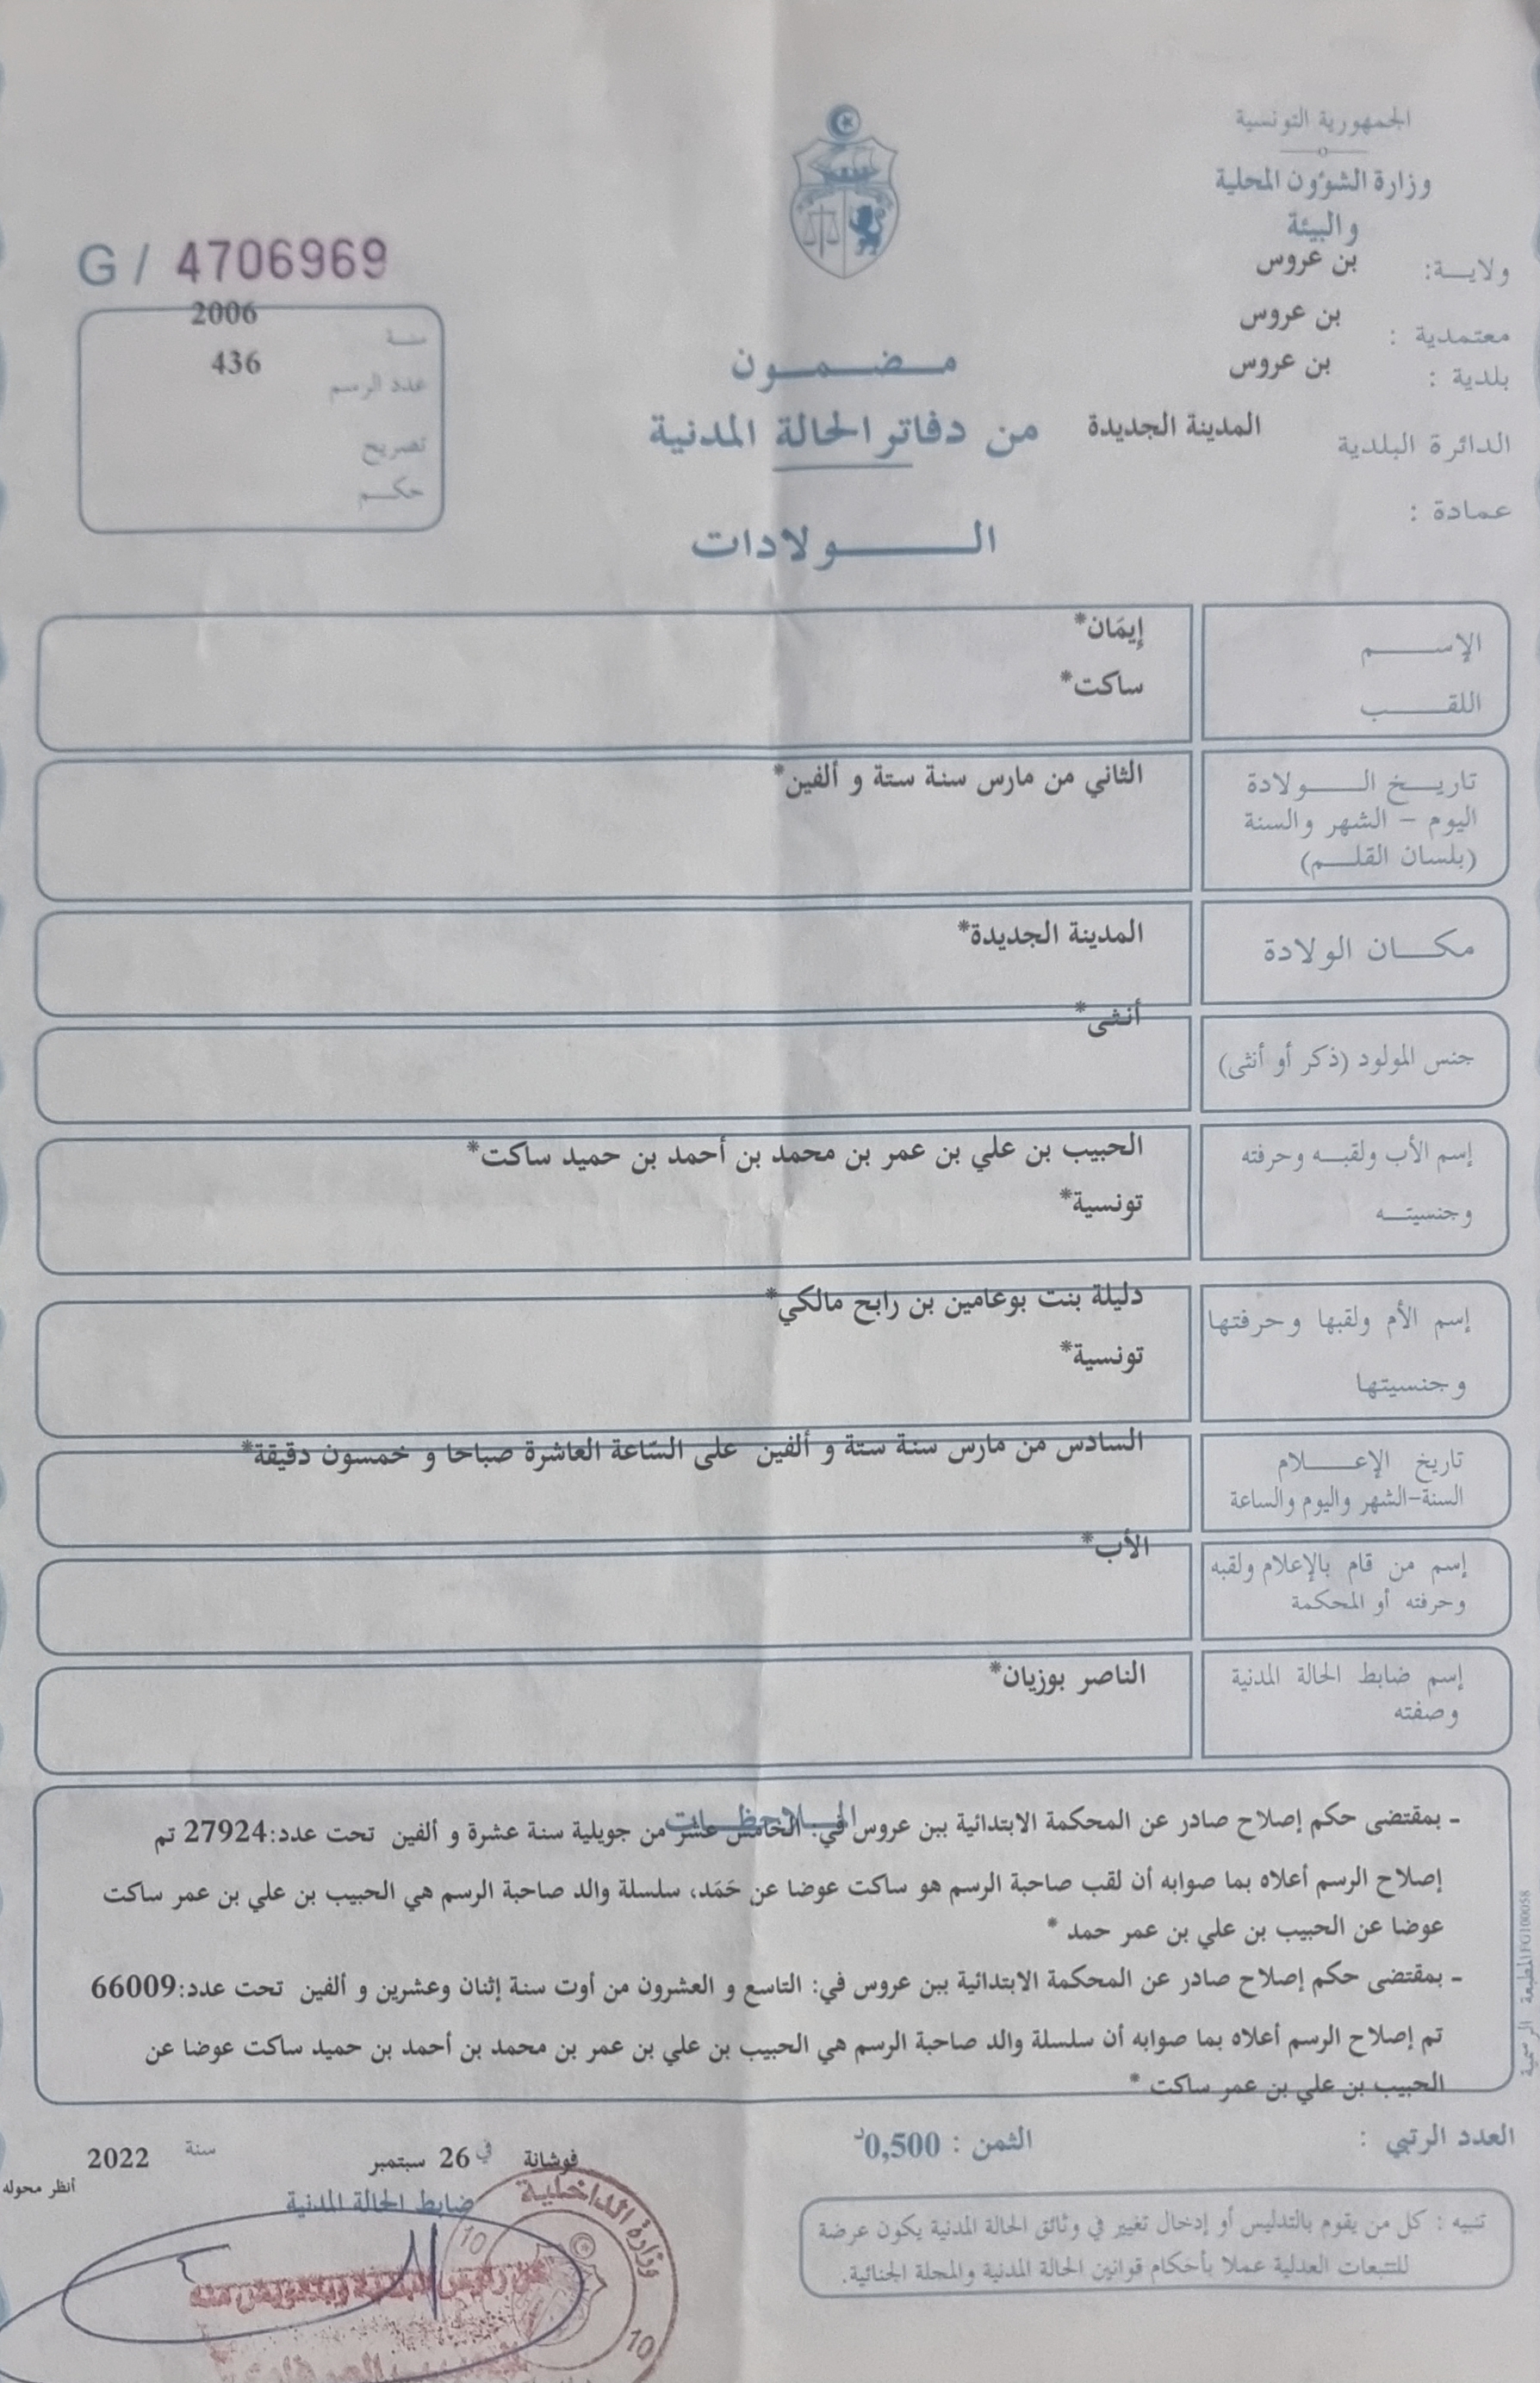 الجمهورية التونسية
وزارة الشؤون المحلية
والبيئة
ولايـــة: بن عروس
معتمدية : بن عروس
بلدية : بن عروس
الدائرة البلدية المدينة الجديدة
عمادة :
G / 4706969
سنة 2006
عدد الرسم 436
تصريح
حكم
مضمون
من دفاتر الحالة المدنية
الولادات
الإسم إيمَان*
اللقب ساكت*
تاريخ الولادة الثاني من مارس سنة ستة و ألفين*
اليوم - الشهر والسنة
(بلسان القلم)
مكان الولادة المدينة الجديدة*
جنس المولود (ذكر أو أنثى) أنثى*
إسم الأب ولقبه وحرفته الحبيب بن علي بن عمر بن محمد بن أحمد بن حميد ساكت*
وجنسيته تونسية*
إسم الأم ولقبها وحرفتها دليلة بنت بوعامين بن رابح مالكي*
وجنسيتها تونسية*
تاريخ الإعلام السادس من مارس سنة ستة و ألفين على السّاعة العاشرة صباحا و خمسون دقيقة*
السنة-الشهر واليوم والساعة
إسم من قام بالإعلام ولقبه الأب*
وحرفته أو المحكمة
إسم ضابط الحالة المدنية الناصر بوزيان*
وصفته
الملاحظات
- بمقتضى حكم إصلاح صادر عن المحكمة الابتدائية ببن عروس في: الخامس عشر من جويلية سنة عشرة و ألفين تحت عدد:27924 تم
إصلاح الرسم أعلاه بما صوابه أن لقب صاحبة الرسم هو ساكت عوضا عن حَمَد، سلسلة والد صاحبة الرسم هي الحبيب بن علي بن عمر ساكت
عوضا عن الحبيب بن علي بن عمر حمد *
- بمقتضى حكم إصلاح صادر عن المحكمة الابتدائية ببن عروس في: التاسع و العشرون من أوت سنة إثنان وعشرين و ألفين تحت عدد:66009
تم إصلاح الرسم أعلاه بما صوابه أن سلسلة والد صاحبة الرسم هي الحبيب بن علي بن عمر بن محمد بن أحمد بن حميد ساكت عوضا عن
الحبيب بن علي بن عمر ساكت *
المطبعة الرسمية IFG100058
العدد الرتبي :
الثمن : 0,500د
فوشانة في 26 سبتمبر سنة 2022
أنظر محوله
ضابط الحالة المدنية
تنبيه : كل من يقوم بالتدليس أو إدخال تغيير في وثائق الحالة المدنية يكون عرضة
للتتبعات العدلية عملا بأحكام قوانين الحالة المدنية والمجلة الجنائية.
وزارة الداخلية
10
10
عن رئيس البلدية وبتفويض منه